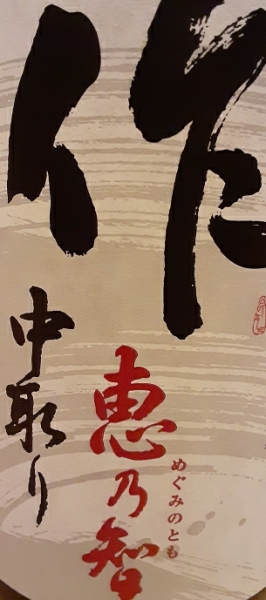 作
恵乃智
めぐみのとも
中取り